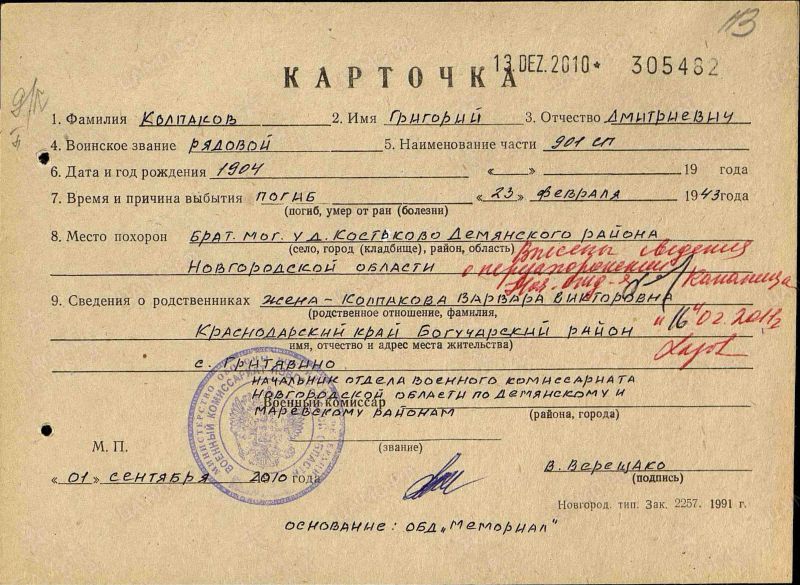 13
13.DEZ.2010* 305462
КАРТОЧКА
1. Фамилия Колпаков 2. Имя Григорий 3. Отчество Дмитриевич
4. Воинское звание рядовой 5. Наименование части 901 сп
6. Дата и год рождения 1904 « » 19 года
7. Время и причина выбытия погиб « 23 » февраля 1943 года
(погиб, умер от ран (болезни)
8. Место похорон брат. мог. у д. Костьково Демянского района
(село, город (кладбище), район, область)
Новгородской области
Внесены сведения
о перезахоронении
9. Сведения о родственниках жена – Колпакова Варвара Викторовна
(родственное отношение, фамилия,
Краснодарский край Богучарский район
"16" 02. 2011г
имя, отчество и адрес места жительства)
с. Гритявино
начальник отдела военного комиссариата
Военный комиссар
Новгородской области по Демянскому и
Маревскому районам
(района, города)
М. П.
(звание)
« 01 » сентября 2010 года
В. Верещако
(подпись)
Новгород. тип. Зак. 2257. 1991 г.
основание: ОБД „Мемориал"